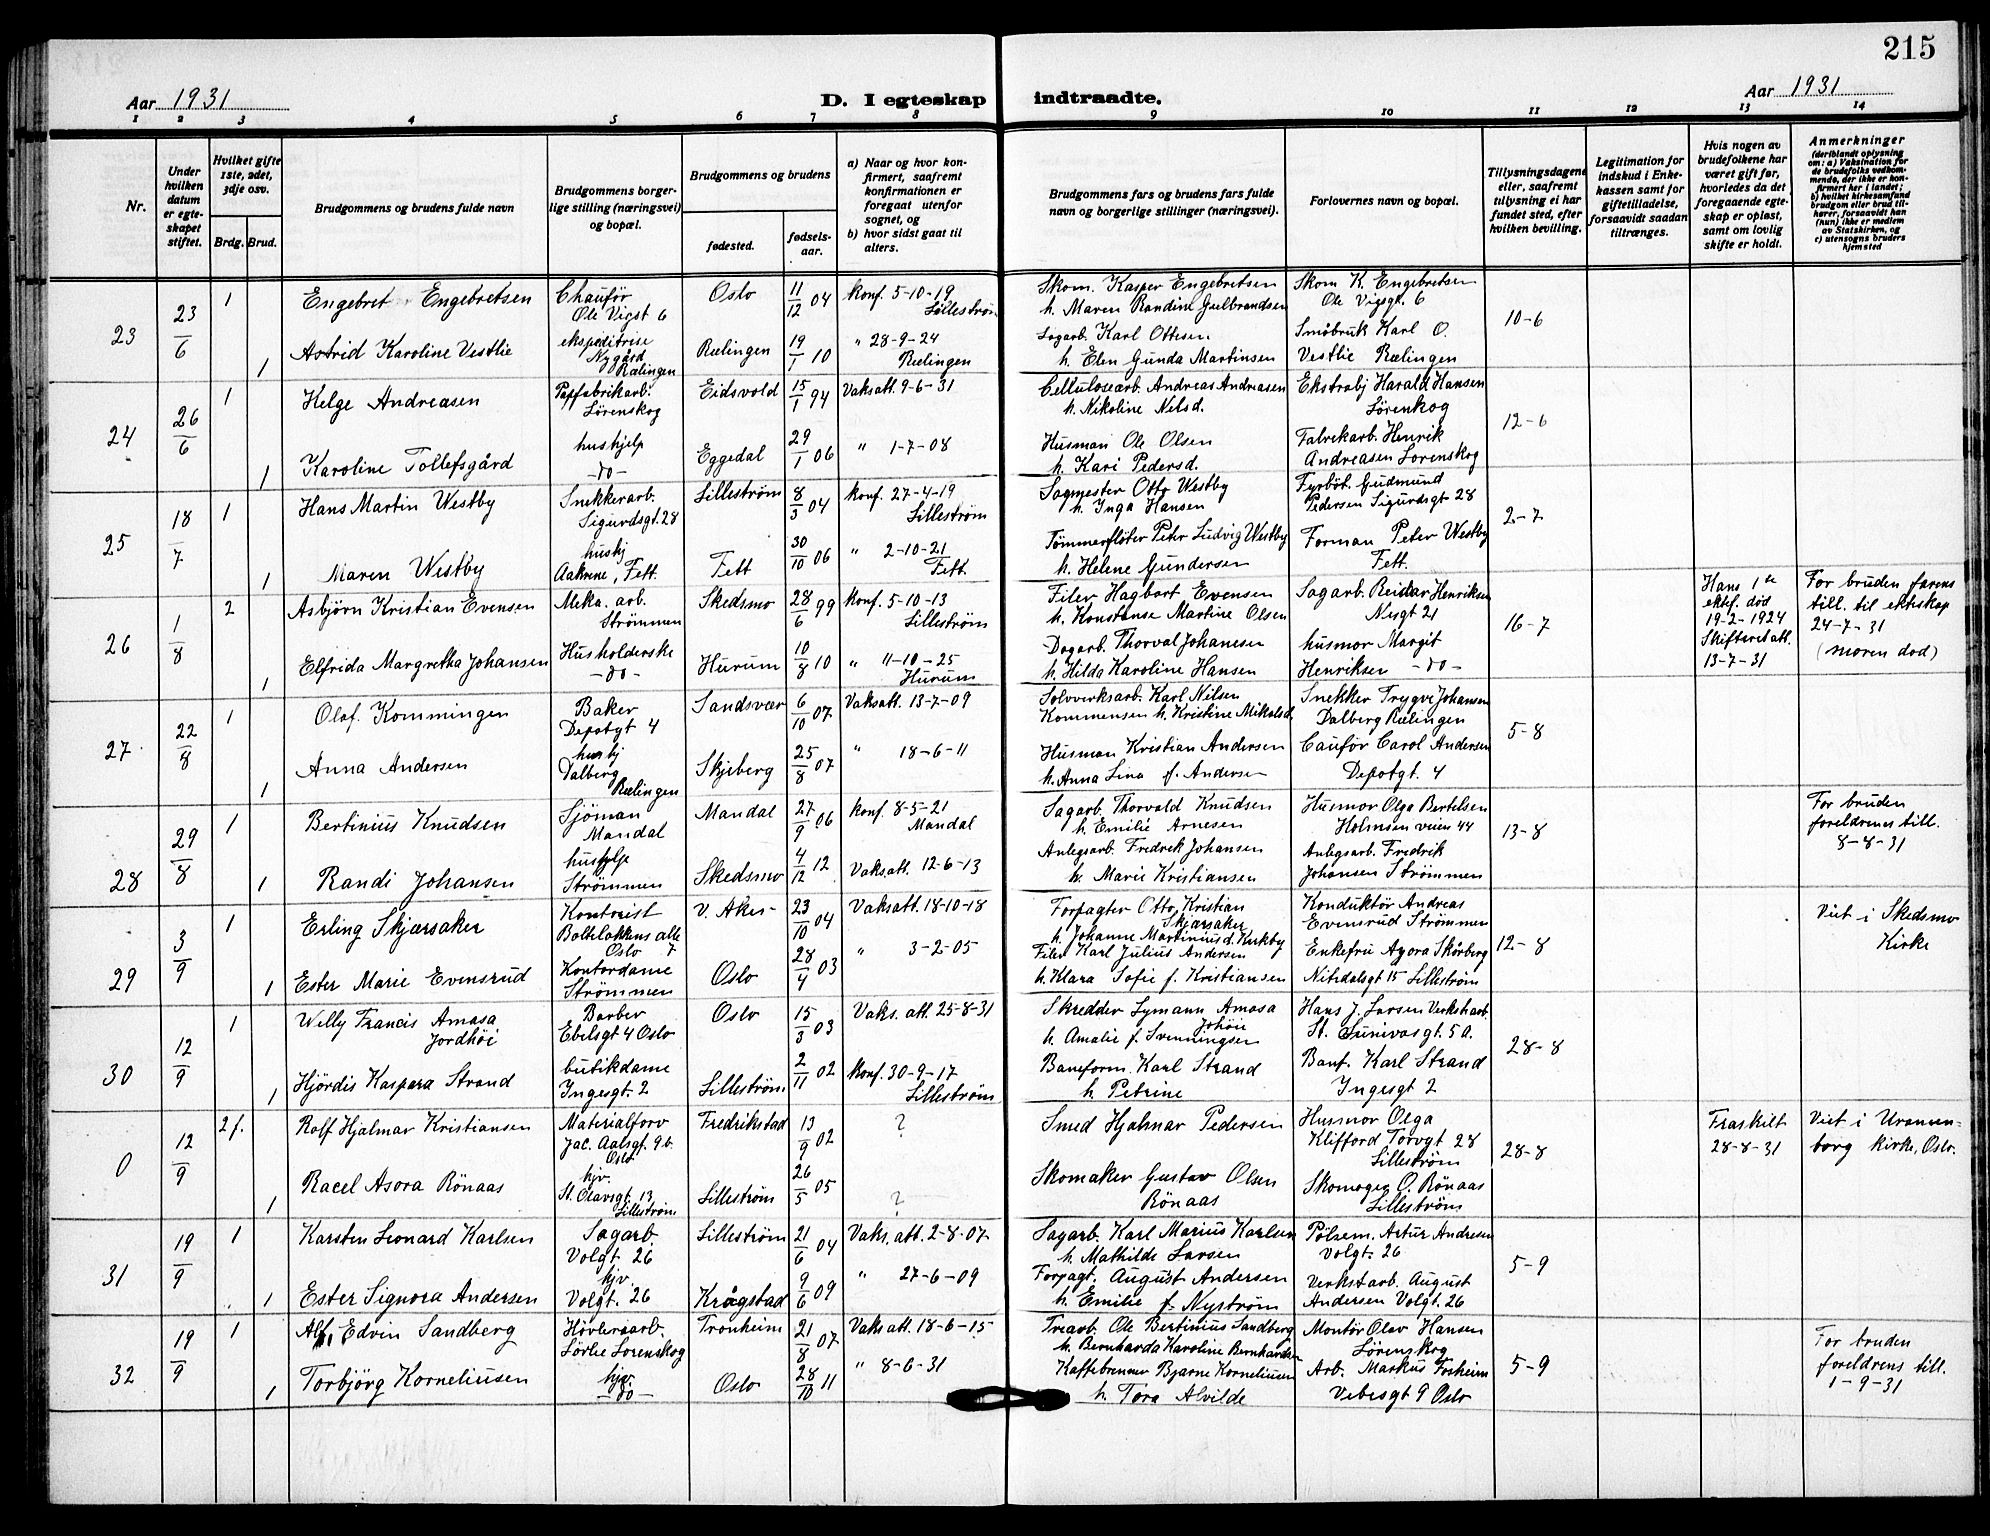 215
Aar 1931
D. I egteskap indtraadte.
Aar 1931
1 2 3 4 5 6 7 8 9 10 11 12 13 14
Nr.
Under hvilken datum er egteskapet stiftet.
Hvilket gifte 1ste, 2det, 3dje osv.
Brdg. Brud.
Brudgommens og brudens fulde navn
Brudgommens borgerlige stilling (næringsvei) og bopæl.
Brudgommens og brudens
fødested.
fødselsaar.
a) Naar og hvor konfirmert, saafremt konfirmationen er foregaat utenfor sognet, og
b) hvor sidst gaat til alters.
Brudgommens fars og brudens fars fulde navn og borgerlige stillinger (næringsvei).
Forlovernes navn og bopæl.
Tillysningsdagene eller, saafremt tillysning ei har fundet sted, efter hvilken bevilling.
Legitimation for indskud i Enkekassen samt for giftetilladelse, forsaavidt saadan tiltrænges.
Hvis nogen av brudefolkene har været gift før, hvorledes da det foregaaende egteskap er opløst, samt om lovlig skifte er holdt.
Anmerkninger
(deriblandt oplysning om: a) Vaksination for de brudefolks vedkommende, der ikke er konfirmert her i landet; b) hvilket kirkesamfund brudgom eller brud tilhører, forsaavidt han (hun) ikke er medlem av Statskirken, og c) utensogns bruders hjemsted
23 23/6 1 Engebret Engebretsen Chaufør Ole Vigst 6 Oslo 11/12 04 Konf. 5-10-19 Lilleström
Skom. Kasper Engebretsen h. Maren Randine Gulbrandsen Skom K. Engebretsen Ole Vigsgt. 6 10-6
1 Astrid Karoline Vestlie ekspeditrise Nygård Rælingen Rælingen 19/1 10 " 28-9-24 Rælingen
Sagarb. Karl Ottesen h. Elen Gunda Martinsen Småbruk Karl O. Vestlie Rælingen
24 26/6 1 Helge Andreasen Papfabrikarb. Lørenskog Eidsvold 15/1 94 Vaksatt. 9-6-31
Cellulosearb. Andreas Andreasen h. Nikoline Nelsd. Ekstrabj Harald Hansen Lørenkog 12-6
1 Karoline Tollefsgård hushjelp -do- Eggedal 29/1 06 " 1-7-08
Husman Ole Olsen h. Kari Pedersd. Fabrekarb. Henrik Andreasen Lorenskog
25 18/7 1 Hans Martin Westby Snekkerarb. Sigurdsgt. 28 Lilleström 8/3 04 Konf. 27-4-19 Lilleström
Sagmester Otto Westby h. Inga Hansen Fyrbøt. Gudmund Pedersen Sigurdsgt 28 2-7
1 Maren Westby husbj Aakrene, Fett. Fett 30/10 06 " 2-10-21 Fett.
Tømmerfløter Peter Ludvig Westby h. Helene Gundersen Forman Peter Westby Fett.
26 1/8 2 Asbjørn Kristian Evensen Meka. arb. Strømmen Skedsmo 28/6 99 Konf. 5-10-13 Lilleström
Filer Hagbart Evensen h. Konstanse Martine Olsen Sagarb. Reidar Henriksen Nesgt 21 16-7
Hans 1ste ektef. död 19-2-1924 Skifteret att. 13-7-31
For bruden farens till. til ekteskap 24-7-31 (moren död)
1 Elfrida Margretha Johansen Husholderske -do- Hurum 10/8 10 " 11-10-25 Hurum
Dagarb. Thorval Johansen h. Hilda Karoline Hansen husmor Margit Henriksen -do-
27 22/8 1 Olaf. Kommingen Baker Depotgt 4 Sandsvær 6/10 07 Vaksatt. 13-7-09
Solvverksarb. Karl Nilsen Kommensen h. Kristine Mikalsd. Snekker Trygve Johansen Dalberg Rælingen 5-8
1 Anna Andersen husbj Dalberg Rælingen Skjeberg 25/8 07 " 18-6-11
Husman Kristian Andersen h. Anna Lina f. Andersen Caufør Carol Andersen Depotgt. 4
28 29/8 1 Bertinius Knudsen Sjöman Mandal Mandal 27/9 06 Konf. 8-5-21 Mandal
Sagarb. Thorvald Knudsen h. Emilie Arnesen Husmor Olga Bertelsen Holmsen veien 44 13-8
For bruden foreldrenes till. 8-8-31
1 Randi Johansen hushjelp Strømmen Skedsmo 4/12 12 Vaksatt. 12-6-13
Anlegsarb. Fredrek Johansen h. Marie Kristiansen Anlegsarb. Fredrik Johansen Strömmen
29 3/9 1 Erling Skjærsaker Kontorist Bolteløkkens alle 7 Oslo V. Aker 23/10 04 Vaksatt. 18-10-18
Forpagter Otto Kristian Skjærsaker h. Johanne Martiniusd. Kirkby Konduktør Andreas Evensrud Strömmen 12-8
Viet i Skedsmo Kirke
1 Ester Marie Evensrud Kontordame Strömmen Oslo 28/4 03 " 3-2-05
Filer Karl Julius Andersen h. Klara Sofie f. Kristiansen Enkefru Agora Skårberg Nitedalsgt 15 Lilleström
30 12/9 1 Willy Francis Amasa Jordhöi Barber Ebelsgt 4 Oslo Oslo 15/3 03 Vaks. att. 25-8-31
Skredder Lymann Amasa h. Amalie f. Svenningsen Hans J. Larsen Verkstarb. St. Sunivasgt. 5 A. 28-8
1 Hjördis Kaspara Strand butikdame Ingesgt. 2 Lilleström 2/11 02 Konf. 30-9-17 Lilleström
Baneform. Karl Strand h. Petrine Banf. Karl Strand Ingesgt 2
0 12/9 2 f. Rolf Hjalmar Kristiansen Materialforv Jac. Aalsgt. 9.b. Oslo Fredrikstad 13/9 02 ?
Smed Hjalmar Pedersen Husmor Olga Klifford Torvgt 28 Lilleström 28-8
Fraskilt 28-8-31
Viet i Uranienborg Kirke, Oslo.
1 Racel Asora Rönaas hjv. St. Olavsgt. 13 Lilleström Lilleström 26/5 05 ?
Skomaker Gustav Olsen Rönaas Skomager O. Rönaas Lilleström
31 19/9 1 Karsten Leonard Karlsen Sagarb. Volgt. 26 Lilleström 21/6 04 Vaks. att. 2-8-07
Sagarb. Karl Marius Karlsen h. Mathilde Larsen Pølsem. Artur Andresen Volgt. 26 5-9
1 Ester Signora Andersen hjv. Volgt. 26 Krågstad 9/6 09 " 27-6-09
Forpagt. August Andersen h. Emilie f. Nyström Verkstarb. August Andersen Volgt. 26
32 19/9 1 Alf Edvin Sandberg Høvleriarb. Lørlie Lorenskog Tronheim 21/8 07 Vaks att. 18-6-15
Trearb. Ole Bertinius Sandberg h. Bernharda Karoline Bernhardsen Montör Olav Hansen Lörenskog 5-9
For bruden foreldrens till. 1-9-31
1 Torbjörg Korneliusen hjv. -do- Oslo 28/10 11 " 8-6-31
Kaffebrenner Bjarne Korneliusen h. Tora Alvilde Arb. Markus Forheim Vebesgt 9 Oslo